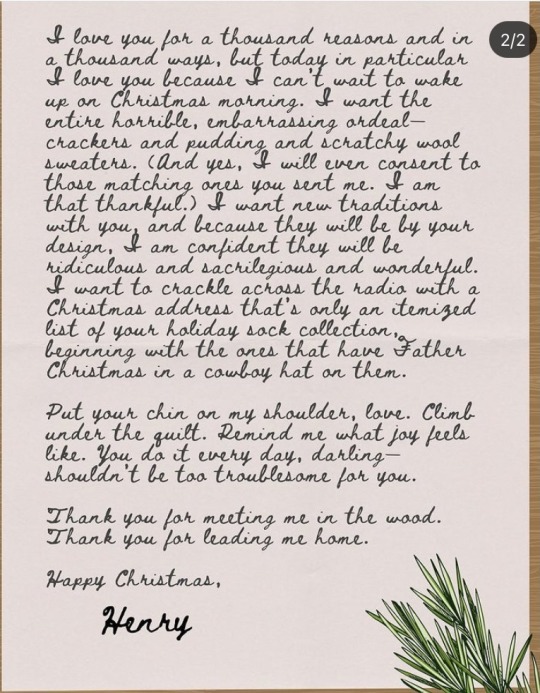 2/2
I love you for a thousand reasons and in
a thousand ways, but today in particular
I love you because I can't wait to wake
up on Christmas morning. I want the
entire horrible, embarrassing ordeal—
crackers and pudding and scratchy wool
sweaters. (And yes, I will even consent to
those matching ones you sent me. I am
that thankful.) I want new traditions
with you, and because they will be by your
design, I am confident they will be
ridiculous and sacrilegious and wonderful.
I want to crackle across the radio with a
Christmas address that's only an itemized
list of your holiday sock collection,
beginning with the ones that have Father
Christmas in a cowboy hat on them.
Put your chin on my shoulder, love. Climb
under the quilt. Remind me what joy feels
like. You do it every day, darling—
shouldn't be too troublesome for you.
Thank you for meeting me in the wood.
Thank you for leading me home.
Happy Christmas,
Henry